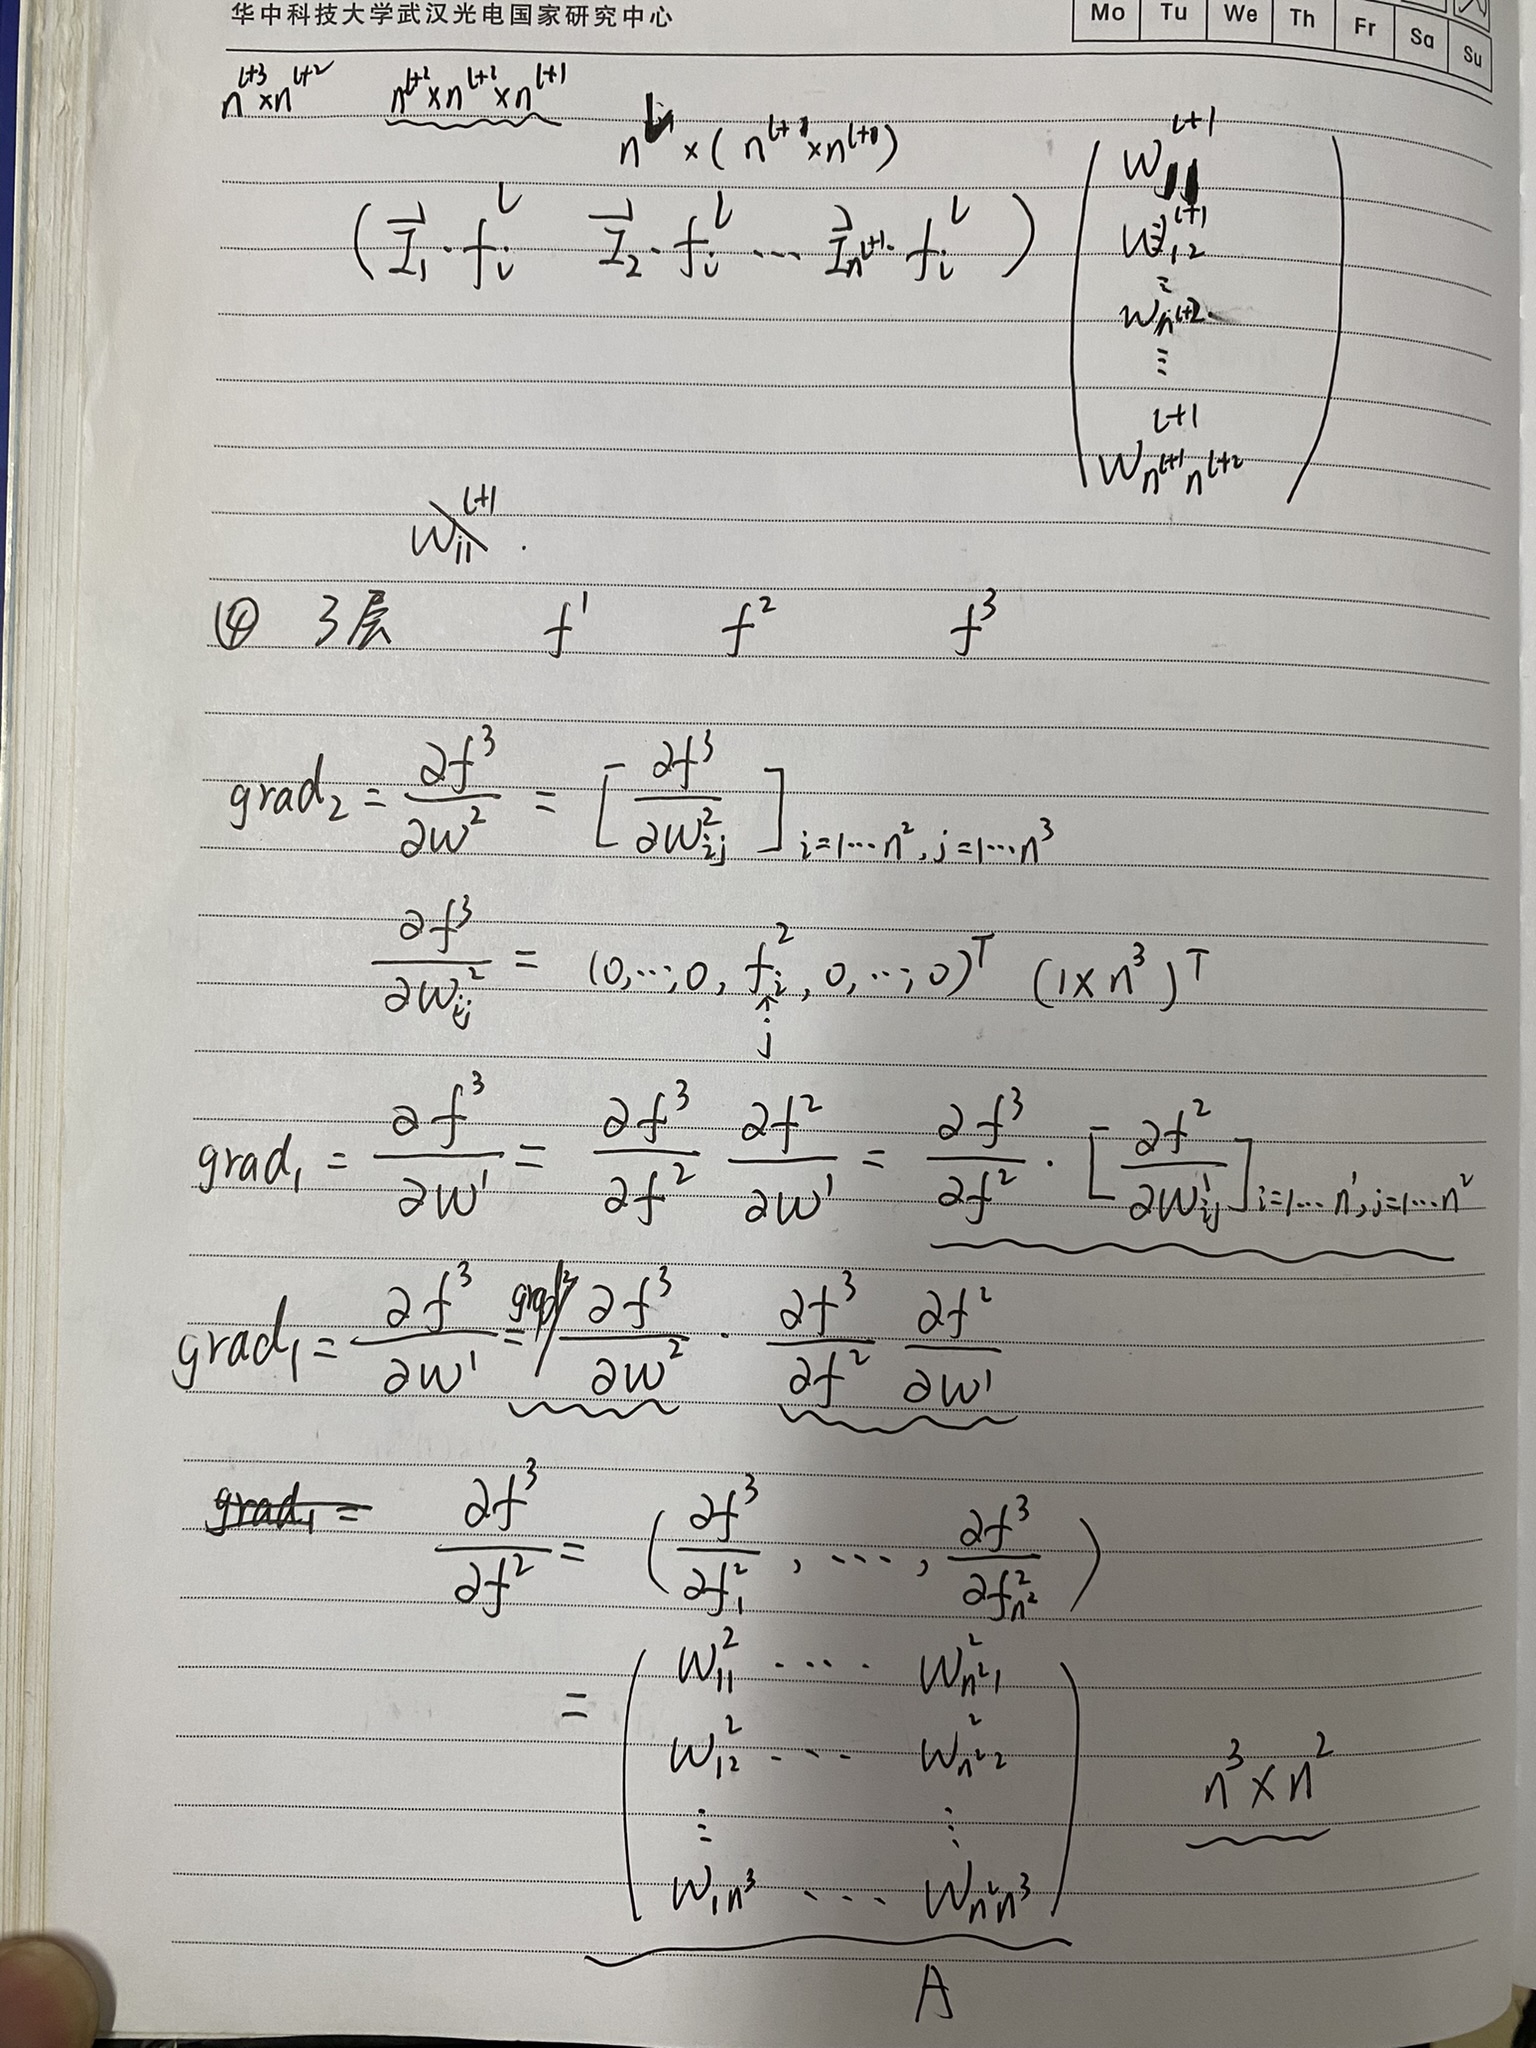 华中科技大学武汉光电国家研究中心
Mo Tu We Th Fr Sa Su
n^{l+3}×n^{l+2} n^{l+2}×n^{l+2}×n^{l+1}
×(n^{l+1}×n^{l+0})
(\vec{I}_1·f_i^l \vec{I}_2·f_i^l ... \vec{I}_{n^{l+1}}·f_i^l)
w_{11}^{l+1}
w_{12}^{l+1}
⋮
w_{n^{l+2}}
⋮
w_{n^{l+1}n^{l+2}}^{l+1}
w_{11}^{l+1}.
④ 3层 f^1 f^2 f^3
grad_2 = ∂f^3/∂w^2 = [∂f^3/∂w_{ij}^2]_{i=1...n^2, j=1...n^3}
∂f^3/∂w_{ij}^2 = (0,...,0, f_i^2, 0,...,0)^T (1×n^3)^T
↑
j
grad_1 = ∂f^3/∂w^1 = ∂f^3/∂f^2 ∂f^2/∂w^1 = ∂f^3/∂f^2 · [∂f^2/∂w_{ij}^1]_{i=1...n^1, j=1...n^2}
grad_1 = ∂f^3/∂w^1 = grad^2/ ∂f^3/∂w^2 · ∂f^3/∂f^2 ∂f^2/∂w^1
grad_1 = ∂f^3/∂f^2 = (∂f^3/∂f_1^2, ..., ∂f^3/∂f_{n^2}^2)
= w_{11}^2 .... w_{n^2 1}^2
w_{12}^2 ... w_{n^2 2}^2 n^3×n^2
⋮ ⋮
w_{1n^3} ... w_{n^2n^3}
A